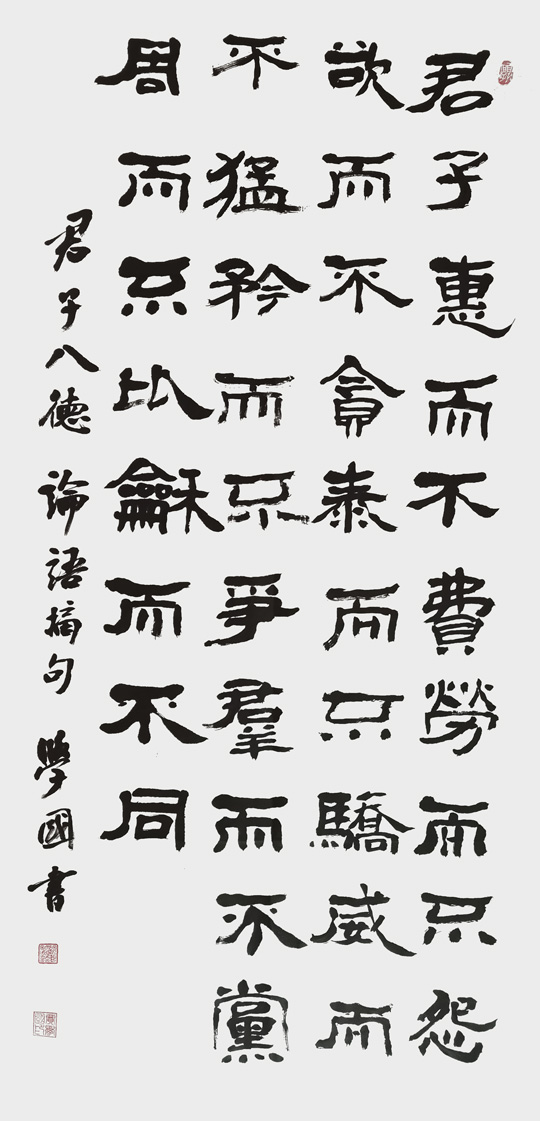 君子惠而不費勞而不怨
欲而不貪泰而不驕威而
不猛矜而不爭羣而不黨
周而不比龢而不同
君子八德 論語摘句 學國書